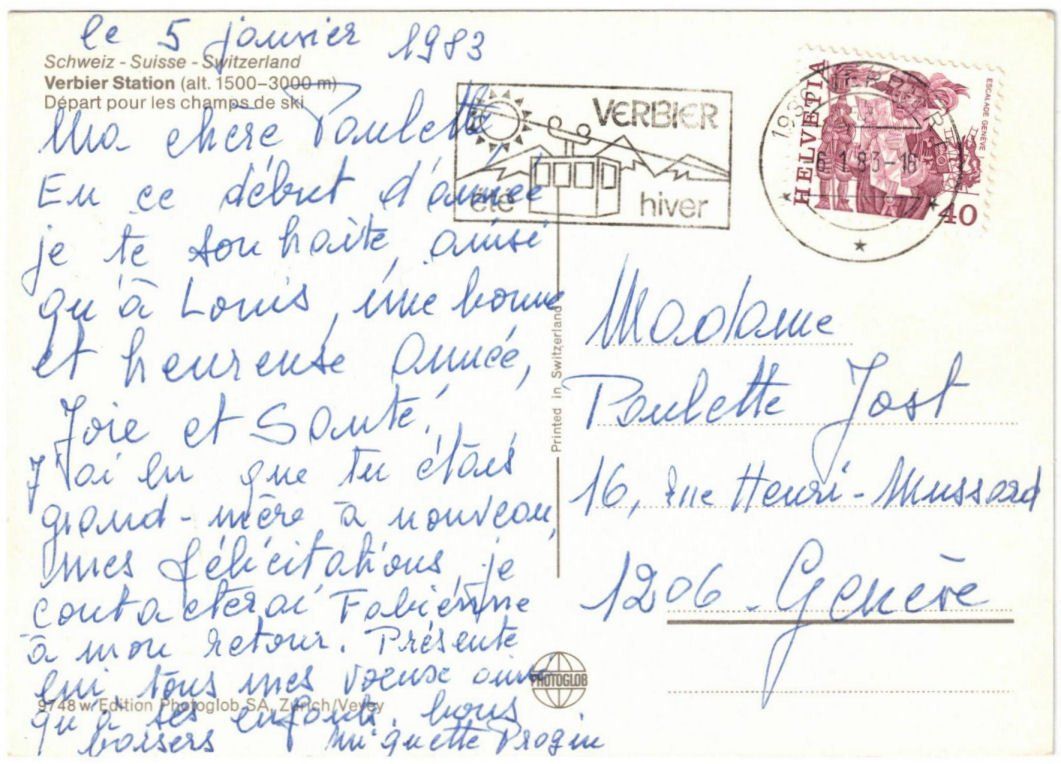 le 5 janvier 1983
Schweiz - Suisse - Switzerland
Verbier Station (alt. 1500–3000 m)
Départ pour les champs de ski
Ma chère Paulette
En ce début d'année
je te souhaite, ainsi
qu'à Louis, une bonne
et heureuse année,
Joie et Santé.
J'ai lu que tu étais
grand-mère à nouveau,
mes félicitations, je
contacterai Fabienne
à mon retour. Présente
lui tous mes voeux ainsi
qu'à ses enfants. bons
baisers Miquette Progin
9748 w Edition Photoglob SA, Zürich/Vevey
VERBIER
été hiver
6.1.83-16
HELVETIA
ESCALADE GENÈVE
40
Printed in Switzerland
Madame
Paulette Jost
16, rue Henri-Mussard
1206 - Genève
PHOTOGLOB